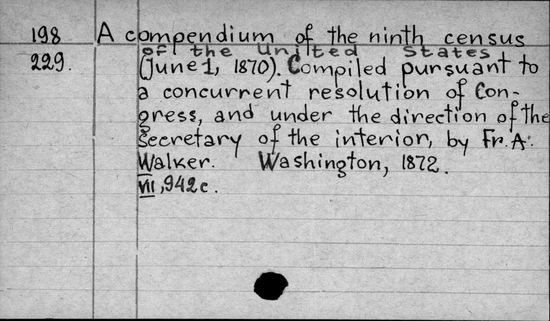 198 A compendium of the ninth census
of the United States
229. (June 1, 1870). Compiled pursuant to
a concurrent resolution of Con-
gress, and under the direction of the
Secretary of the interior, by Fr. A.
Walker. Washington, 1872.
VII, 942 c.